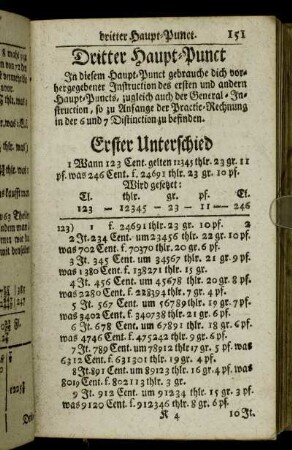 dritter Haupt-Punct. 151
Dritter Haupt-Punct
In diesem Haupt-Punct gebrauche dich vor-
hergegebener Instruction des ersten und andern
Haupt-Puncts, zugleich auch der General-In-
struction, so zu Anfange der Practic-Rechnung
in der 6 und 7 Distinction zu befinden.
Erster Unterschied
1 Wann 123 Cent. gelten 12345 thlr. 23 gr. 11
pf. was 246 Cent. f. 24691 thlr. 23 gr. 10 pf.
Wird gesetzt:
Ct. thlr. gr. pf. Ct.
123 — 12345 — 23 — 11 — 246
123) 1 f. 24691 thlr. 23 gr. 10 pf. 2
2 It. 234 Cent. um 23456 thlr. 22 gr. 10 pf.
was 702 Cent. f. 70370 thlr. 20 gr. 6 pf.
3 It. 345 Cent. um 34567 thlr. 21 gr. 9 pf.
was 1380 Cent. f. 138271 thlr. 15 gr.
4 It. 456 Cent. um 45678 thlr. 20 gr. 8 pf.
was 2280 Cent. f. 228394 thlr. 7 gr. 4 pf.
5 It. 567 Cent. um 56789 thlr. 19 gr. 7 pf.
was 3402 Cent. f. 340738 thlr. 21 gr. 6 pf.
6 It. 678 Cent. um 67891 thlr. 18 gr. 6 pf.
was 4746 Cent. f. 475242 thlr. 9 gr. 6 pf.
7 It. 789 Cent. um 78912 thlr 17 gr. 5 pf. was
6312 Cent. f. 631301 thlr. 19 gr. 4 pf.
8 It. 891 Cent. um 89123 thlr. 16 gr. 4 pf. was
8019 Cent. f. 802113 thlr. 3 gr.
9 It. 912 Cent. um 91234 thlr. 15 gr. 3 pf.
was 9120 Cent. f. 912346 thlr. 8 gr. 6 pf.
K 4 10 It.